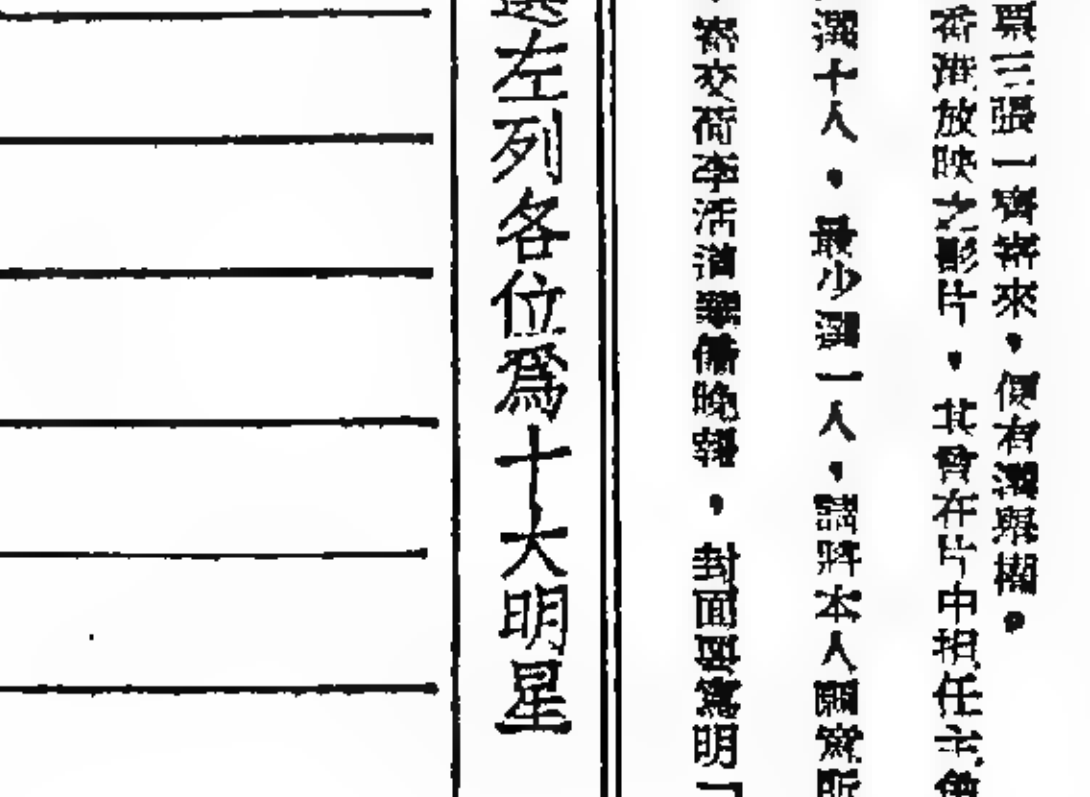 票三張一齊寄來，便有選舉權。
香港放映之影片，其曾在片中担任主角
選十人，最少選一人，請將本人
寄交荷李活道華僑晚報，封面要寫明
選左列各位為十大明星